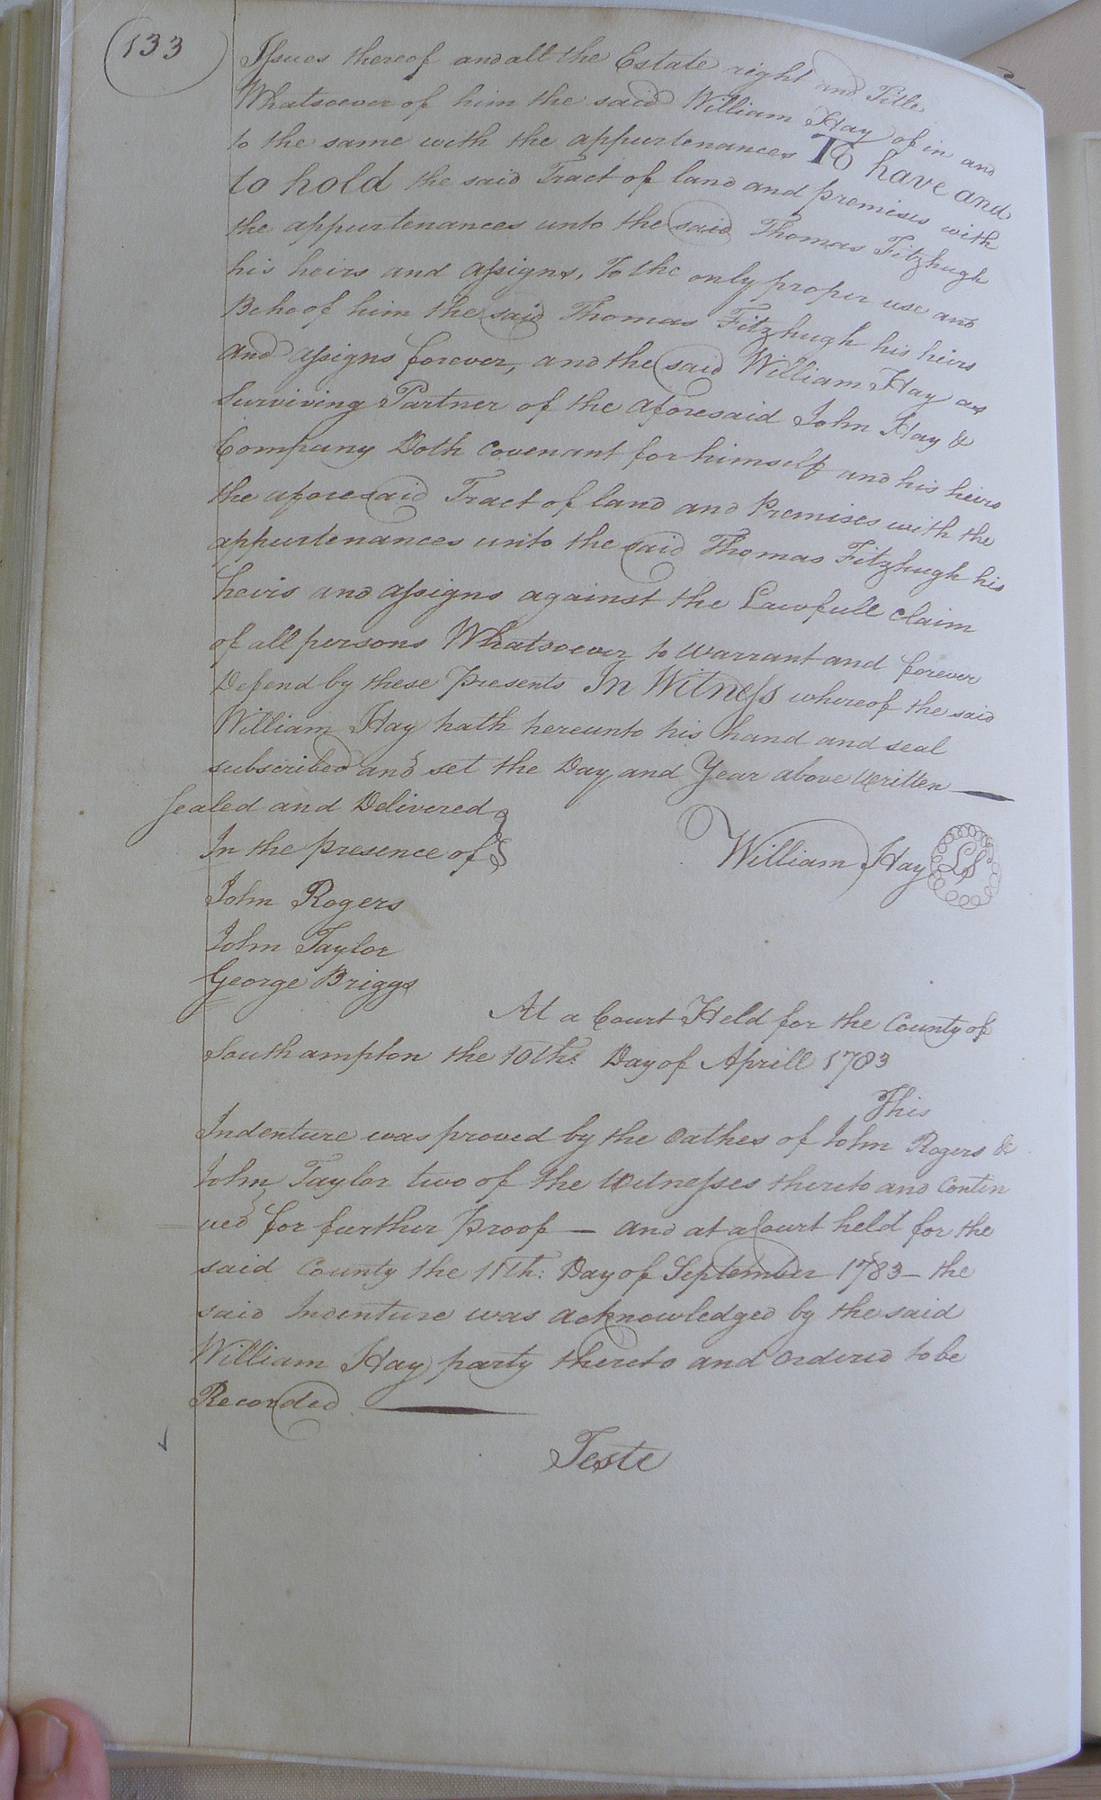 133
Issues thereof and all the Estate right and Title
Whatsoever of him the said William Hay of in and
to the same with the appurtenances To have and
to hold the said Tract of land and premises with
the appurtenances unto the said Thomas Fitzhugh
his heirs and assigns, To the only proper use and
Behoof him the said Thomas Fitzhugh his heirs
and assigns forever, and the said William Hay as
Surviving Partner of the aforesaid John Hay &
Company Doth covenant for himself and his heirs
the aforesaid Tract of land and Premises with the
appurtenances unto the said Thomas Fitzhugh his
heirs and assigns against the Lawfull claim
of all persons Whatsoever to warrant and forever
Defend by these Presents In Witness whereof the said
William Hay hath hereunto his hand and seal
subscribed and set the Day and Year above written
Sealed and Delivered
In the presence of
William Hay LS
John Rogers
John Taylor
George Briggs
At a Court Held for the County of
Southampton the 10th: Day of Aprill 1783
This
Indenture was proved by the oathes of John Rogers &
John Taylor two of the Witnesses thereto and Contin
ued for further Proof — and at a Court held for the
said County the 11th: Day of September 1783 — the
said Indenture was acknowledged by the said
William Hay party thereto and ordered to be
Recorded
Teste